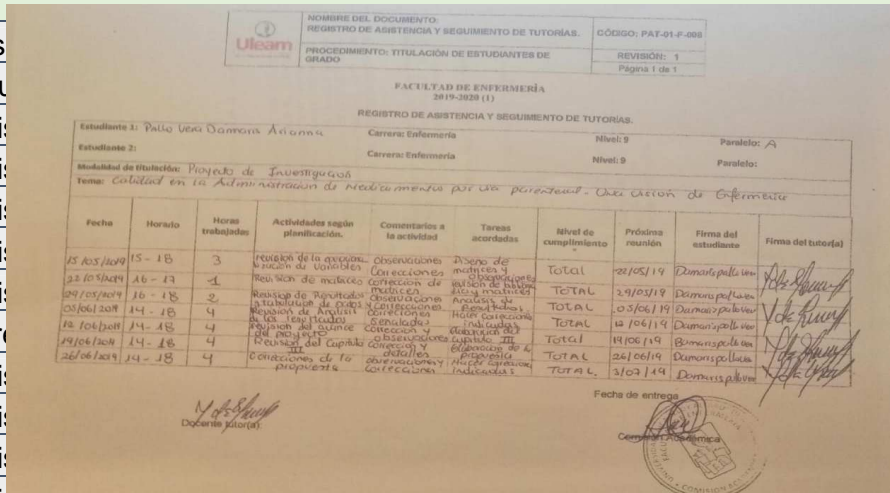 Uleam
NOMBRE DEL DOCUMENTO:
REGISTRO DE ASISTENCIA Y SEGUIMIENTO DE TUTORÍAS.
CÓDIGO: PAT-01-F-008
PROCEDIMIENTO: TITULACIÓN DE ESTUDIANTES DE
GRADO
REVISIÓN: 1
Página 1 de 1
FACULTAD DE ENFERMERÍA
2019-2020 (1)
REGISTRO DE ASISTENCIA Y SEGUIMIENTO DE TUTORÍAS.
Estudiante 1: Vera Arianna Carrera: Enfermería Nivel: 9 Paralelo: A
Estudiante 2: Carrera: Enfermería Nivel: 9 Paralelo:
Modalidad de titulación: Proyecto de Investigación
Tema: Calidad en la Administración de Medicamentos por via parenteral. Una visión de Enfermeria
Fecha Horario Horas trabajadas Actividades según planificación. Comentarios a la actividad Tareas acordadas Nivel de cumplimiento Próxima reunión Firma del estudiante Firma del tutor(a)
15/05/2019 15 - 18 3 revisión de la de variables Observaciones Correcciones Diseño de matrices y Total 22/05/19
22/05/2019 16 - 17 1 Revisión de matrices corrección de matrices revisión de matrices TOTAL 29/05/19
29/05/2019 16 - 18 2 Revision de Resultados tabulación de datos Observaciones Correcciones Análisis de Resultados TOTAL 05/06/19
05/06/2019 14 - 18 4 Revisión de Análisis de los resultados Correciones señaladas Hacer correcciones indicadas TOTAL 12/06/19
12/06/2019 14 - 18 4 revisión del avance del proyecto Corrección observaciones elaboración del Capitulo III Total 19/06/19
19/06/2019 14 - 18 4 Revisión del Capitulo III Corrección y detalles elaboración de la propuesta TOTAL 26/06/19
26/06/2019 14 - 18 4 Correcciones de la propuesta observaciones y correcciones Hacer correciones indicadas TOTAL. 3/07/19
Fecha de entrega
Docente tutor(a):
Comisión Académica